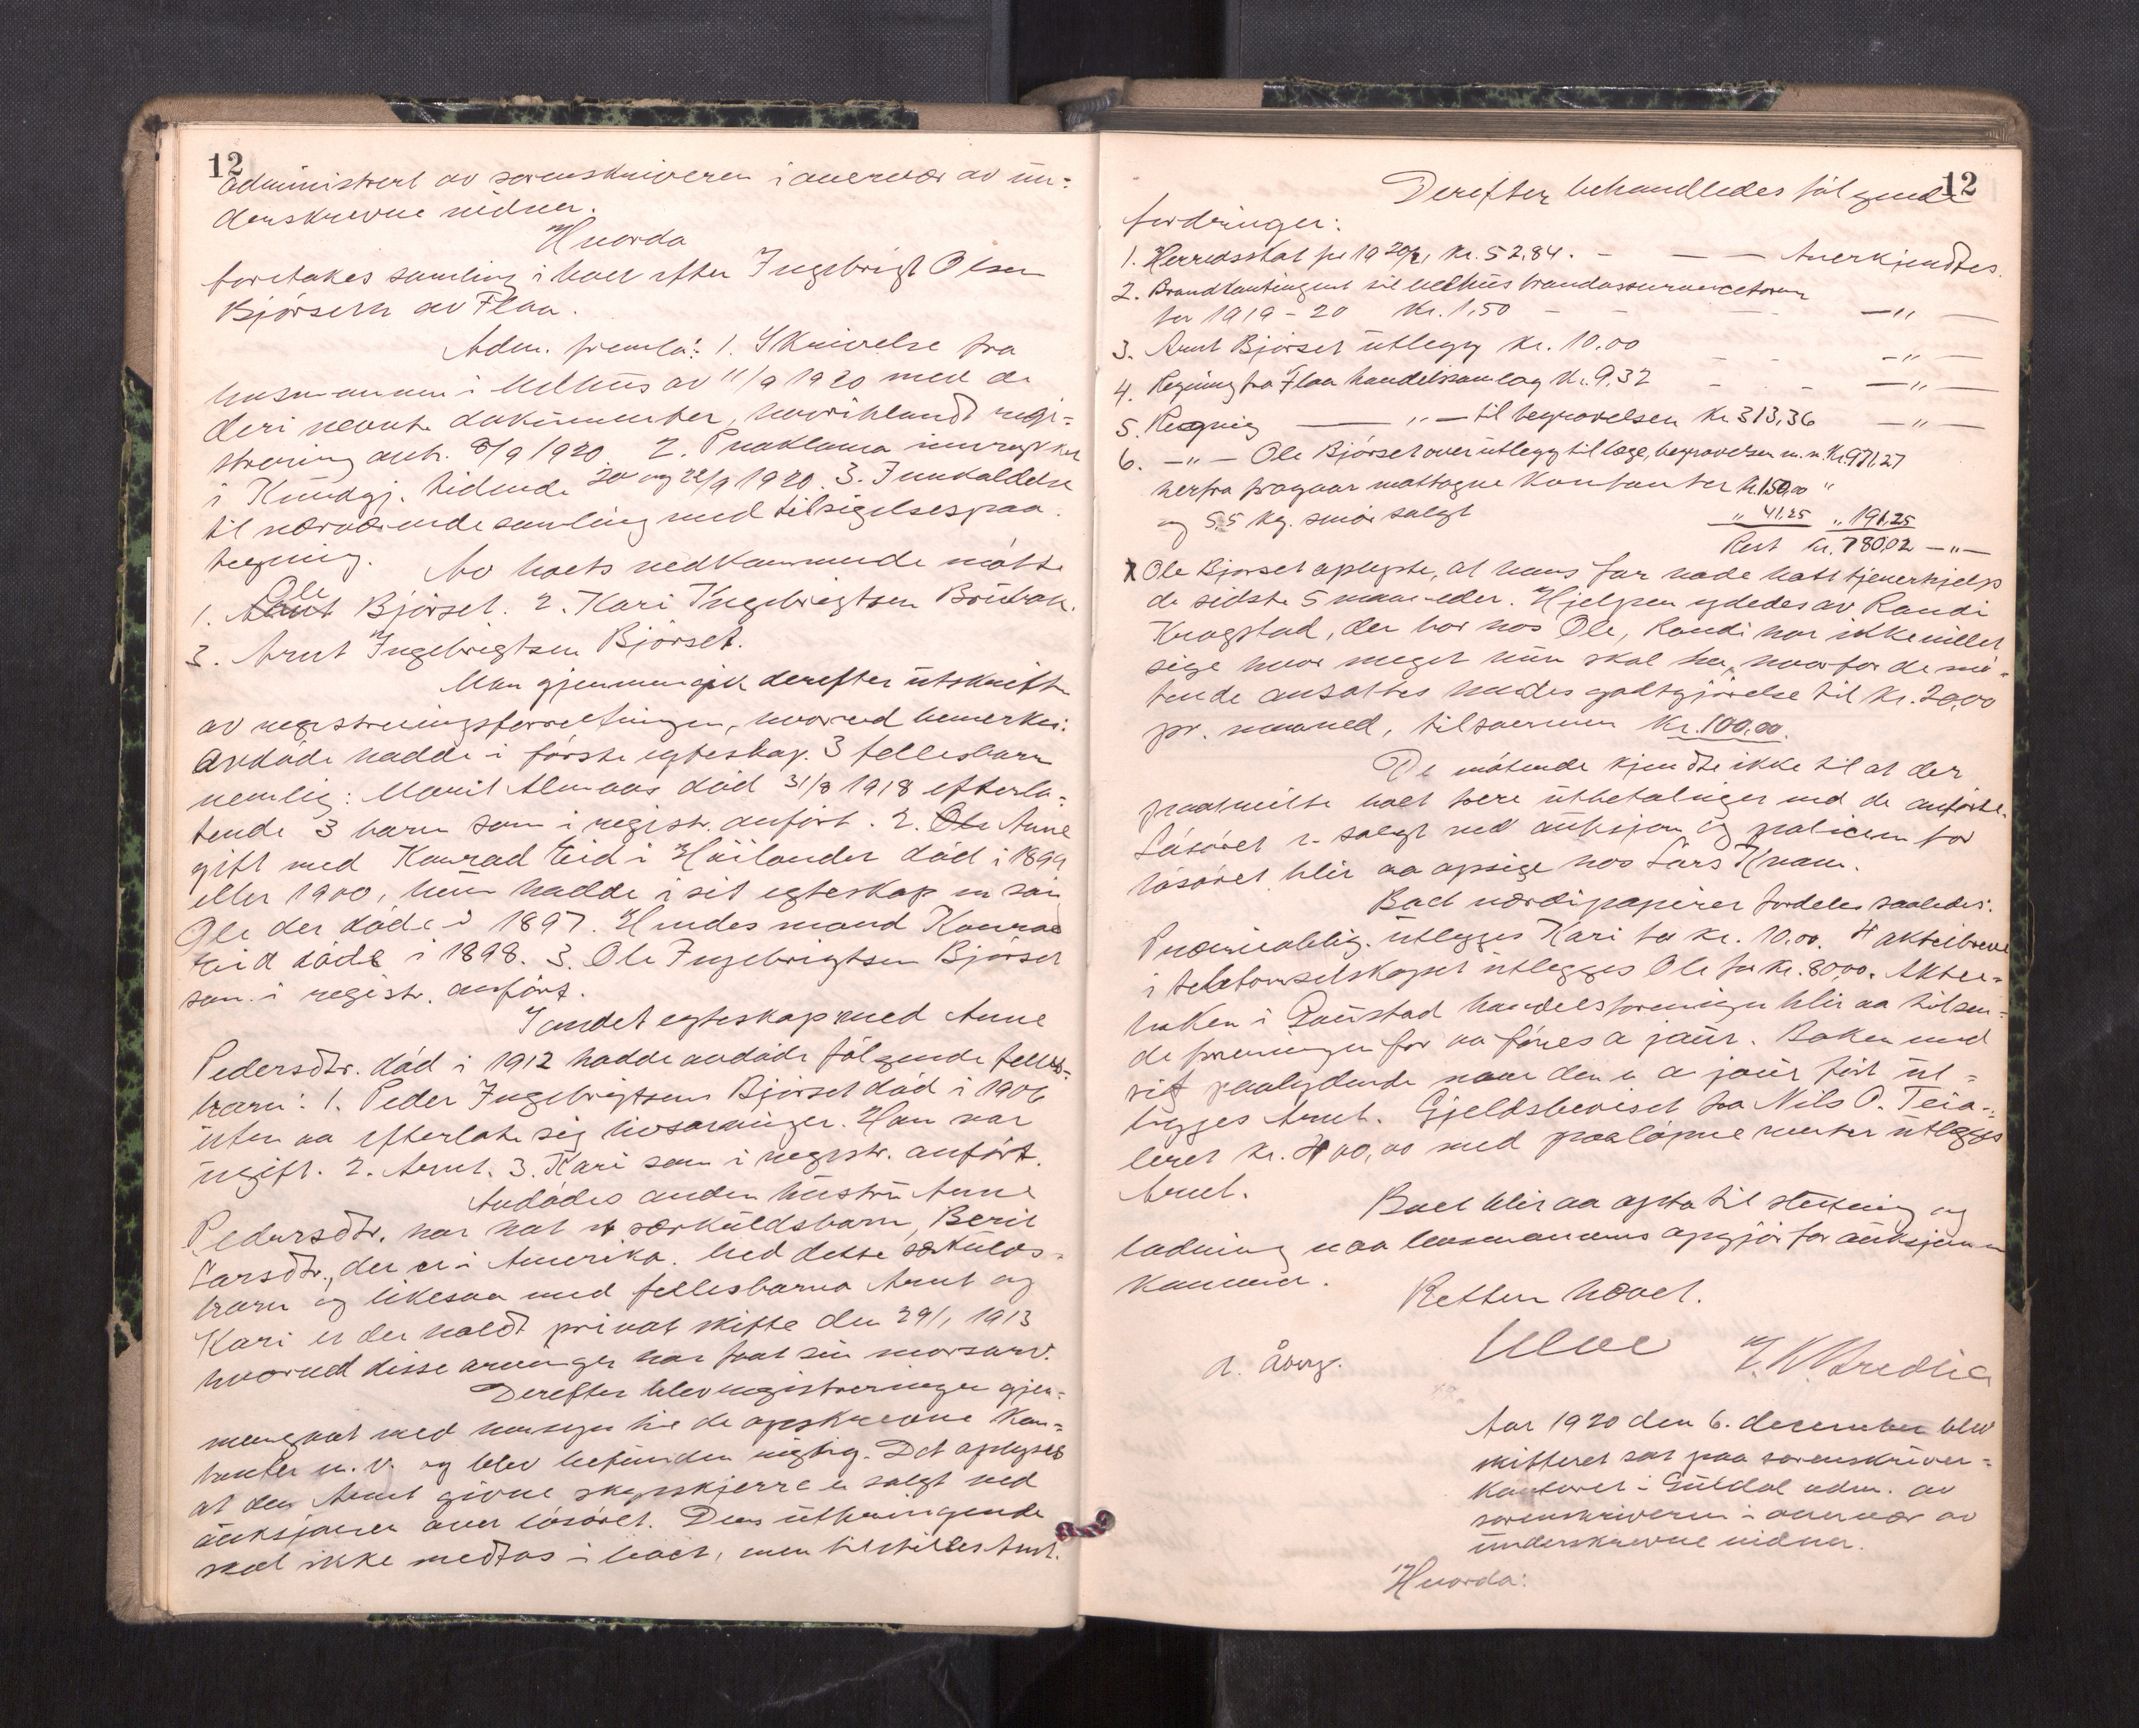 12
administrert av sorenskriveren i overvær av un=
derskrevne vidner.
Hvorda
foretakes samling i boet efter Ingebrigt Olsen
Bjørseth av Flaa.
Adm. fremla: 1. Skrivelse fra
lensmannen i Melhus av 11/9 1920 med de
deri nevnte dokumenter, hvoriblandt regi=
strering avh. 8/9 1920. 2. Proklama innrykket
i Kundgj. tidende 20 og 22/9 1920. 3. Innkaldelse
til nærværende samling med tilsigelsespaa=
tegning. Av boets vedkommende møtte
1. Ole Bjørset. 2. Kari Ingebrigtsen Brubak.
3. Arnt Ingebrigtsen Bjørset.
Man gjennemgik derefter utskrift
av registreringsforretningen, hvorved bemerkes:
Avdøde hadde i første egteskap 3 fellesbarn
nemlig: Marit Almaas død 31/8 1918 efterla=
tende 3 barn som i registr. anført. 2. Ole Anne
gift med Konrad Eid i Høilandet død i 1899
eller 1900, hun hadde i sit egteskap en søn
Ole der døde i 1897. Hendes mand Konrad
Eid døde i 1898. 3. Ole Ingebrigtsen Bjørset
som i registr. anført.
I andet egteskap med Anne
Pedersdtr. død i 1912 hadde avdøde følgende felles=
barn: 1. Peder Ingebrigtsen Bjørset død i 1906
uten aa efterlate sig livsarvinger. Han var
ugift. 2. Arnt. 3. Kari som i registr. anført.
Avdødes anden hustru Anne
Pedersdtr. har hat et særkuldsbarn, Berit
Larsdtr., der er i Amerika. Med dette særkulds=
barn og likesaa med fellesbarna Arnt og
Kari er der holdt privat skifte den 29/1 1913
hvorved disse arvinger har faat sin morsarv.
Derefter blev registreringen gjen=
nemgaat med hensyn til de opskrevne kon=
tanter m.v. og blev befunden rigtig. Det oplyses
at den Arnt givne skysskjerre er solgt ved
auksjonen over løsøret. Dens utbringende
skal ikke medtas i boet, men tilstilles Arnt.
12
Derefter behandledes følgende
fordringer:
1. Herredsskat for 1920/21 Kr. 52.84. — — — Anerkjendtes.
2. Brandkontingent til Melhus brandassuranceforen
for 1919-20 Kr. 1,50 — — — —"—
3. Arnt Bjørset utlegg Kr. 10.00 — — —"—
4. Regning fra Flaa handelssamlag Kr. 9.32 — — —"—
5. Regning —— "— til begravelsen Kr. 313,36 —"—
6. —"— Ole Bjørset over utlegg til læge, begravelsen m.m. Kr. 971.27
herfra fragaar mottagne kontanter Kr. 150,00 "
og 5.5 kg. smør solgt " 41.25 " 191.25
Rest Kr. 780.02 —"—
7 Ole Bjørset oplyste, at hans far hade hatt tjenerhjelp
de sidste 5 maaneder. Hjelpen ydedes av Randi
Krogstad, der bor hos Ole, Randi har ikke villet
sige hvor meget hun skal ha, hvorfor de mø=
tende ansattes hendes godtgjørelse til Kr. 20,00
pr. maaned, tilsammen Kr. 100,00.
De møtende kjendte ikke til at der
paahvilte boet flere utbetalinger end de anførte.
Løsøret er solgt ved auksjon og policen for
løsøret blir aa opsige hos Lars Kvam.
Boets værdipapirer fordeles saaledes:
Præmieoblig. utlegges Kari for kr. 10.00. 4 aktiebreve
i telefonselskapet utlegges Ole for kr. 80,00. Aktie=
boken i Gaustad handelsforening blir aa tilsen=
de foreningen for aa føres a jour. Boken med
sit paalydende naar den er a jour ført ut=
legges Arnt. Gjeldsbeviset fra Nils O. Teig=
leret kr. 400,00 med paaløpne renter utlegges
Arnt.
Boet blir aa opta til slutning og
lodning naar lensmannens opgjør for auksjonen
kommer.
Retten hævet.
A. Åberg.
Aar 1920 den 6. december blev
skifteret sat paa sorenskriver=
kontoret i Guldal adm. av
sorenskriveren i overvær av
underskrevne vidner.
Hvorda: